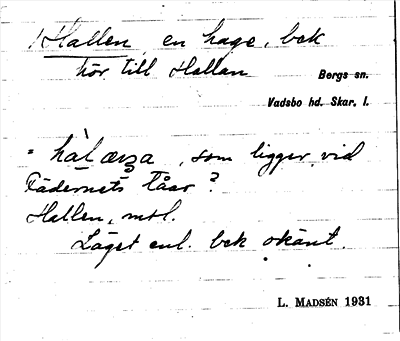 Hallen, en hage, bek
hör till Hallan
Bergs sn.
Vadsbo hd. Skar. l.
= , som ligger vid
Fädernets Tåar ?
Hallen, msl.
Läget enl. bek okänt.
L. MADSÉN 1931